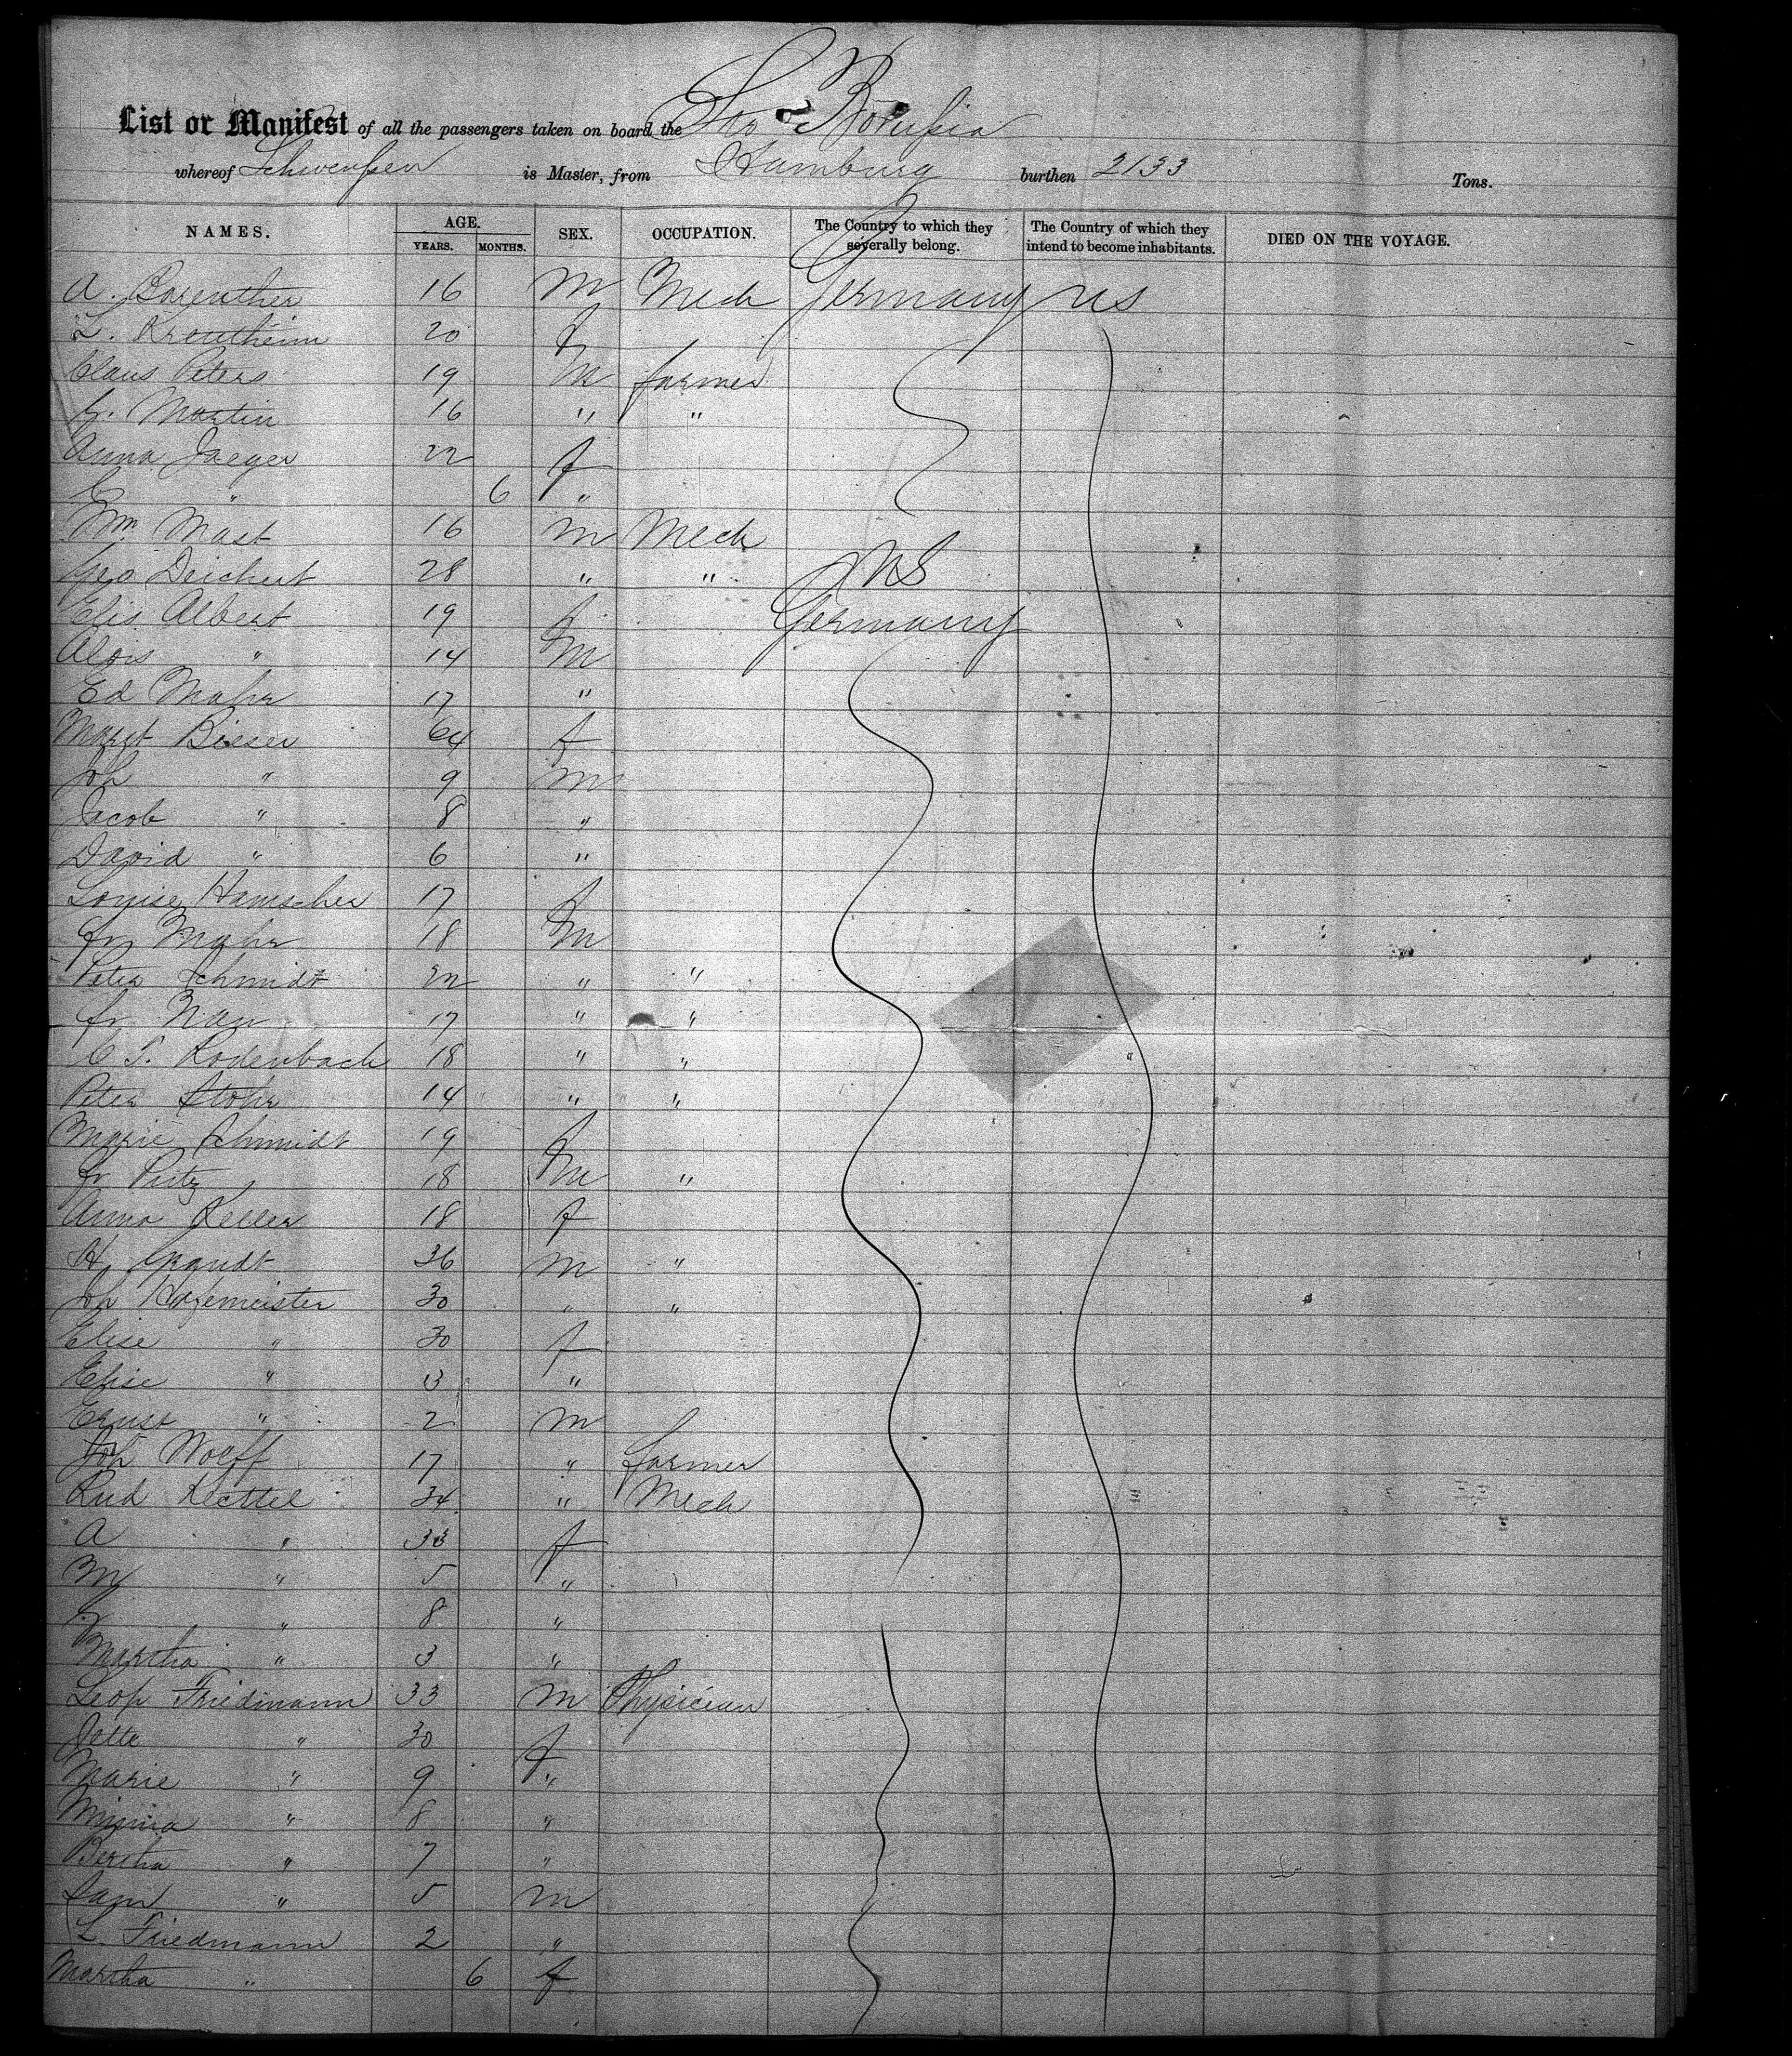 List or Manifest of all the passengers taken on board the Str Borussia
whereof Schwenssen is Master, from Hamburg burthen 2133 Tons.
NAMES. AGE. YEARS. MONTHS. SEX. OCCUPATION. The Country to which they severally belong. The Country of which they intend to become inhabitants. DIED ON THE VOYAGE.
A. Barenther 16 M Mech Germany US
L. Kreutheim 20 f
Claus Peters 19 M farmer
G. Martin 16 " "
Anna Jaeger 22 f
C " 6 "
Wm Mast 16 m Mech
Geo Deichert 28 " " US
Elis Albert 19 f Germany
Alois " 14 M
Ed Mahr 17 "
Margt Bieser 64 f
Joh " 9 m
Jacob " 8 "
David " 6 "
Louise Hamscher 17 f
Fr Mahr 18 M
Peter Schmidt 22 " "
Fr Nau 17 " "
C S. Rodenbach 18 " "
Peter Stohr 14 " "
Marie Schmidt 19 f
Fr Putz 18 M "
Anna Keller 18 f
H Grandt 36 m "
Joh Hofemeister 30 " "
Elise " 30 f
Elise " 3 "
Ernst " 2 m
Joh Wolff 17 " farmer
Rud Kecttel 34 " Mech
A " 33 f
M " 5 "
" 8 "
Martha " 3 "
Leop Friedmann 33 m Physician
Jette " 30 f
Marie " 9 "
Minna " 8 "
Bertha " 7 "
Sam " 5 m
L Friedmann 2 "
Martha " 6 f